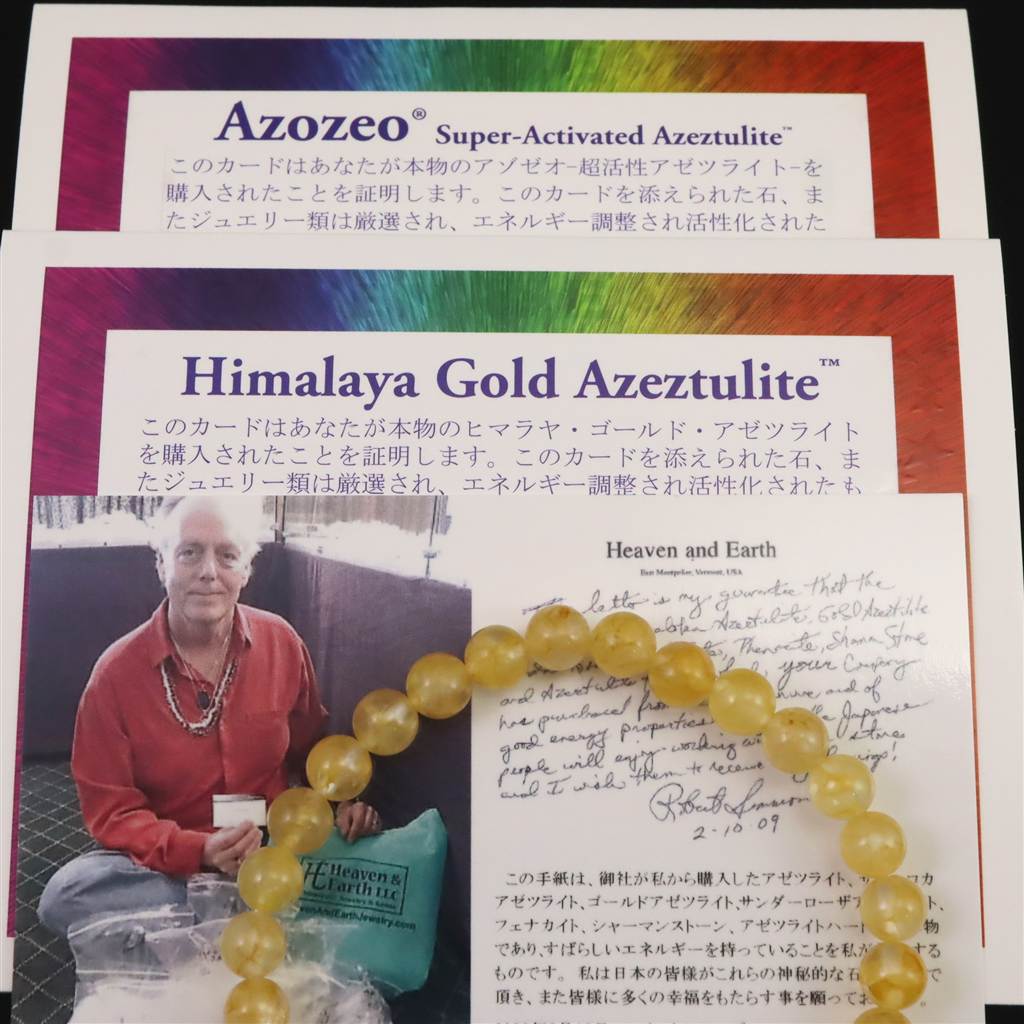 Azozeo® Super-Activated Azeztulite™
このカードはあなたが本物のアゾゼオ-超活性アゼツライト-を
購入されたことを証明します。このカードを添えられた石、ま
たジュエリー類は厳選され、エネルギー調整され活性化された
Himalaya Gold Azeztulite™
このカードはあなたが本物のヒマラヤ・ゴールド・アゼツライト
を購入されたことを証明します。このカードを添えられた石、ま
たジュエリー類は厳選され、エネルギー調整され活性化されたも
Heaven and Earth
East Montpelier, Vermont, USA
letter is my guarantee that the
Azeztulite, Gold Azeztulite
Phenacite, Shaman Stone
and Azeztulite your Company
has purchased from and of
good energy properties Japanese
people will enjoy working stones
and I wish them to receive
Robert Simmons
2-10-09
この手紙は、御社が私から購入したアゼツライト、
アゼツライト、ゴールドアゼツライト、サンダーローザア ト、
フェナカイト、シャーマンストーン、アゼツライトハー 物
であり、すばらしいエネルギーを持っていることを私が する
ものです。 私は日本の皆様がこれらの神秘的な石 で
頂き、また皆様に多くの幸福をもたらす事を願ってお 。
HE Heaven &
Earth LLC
EarthJewelry.com